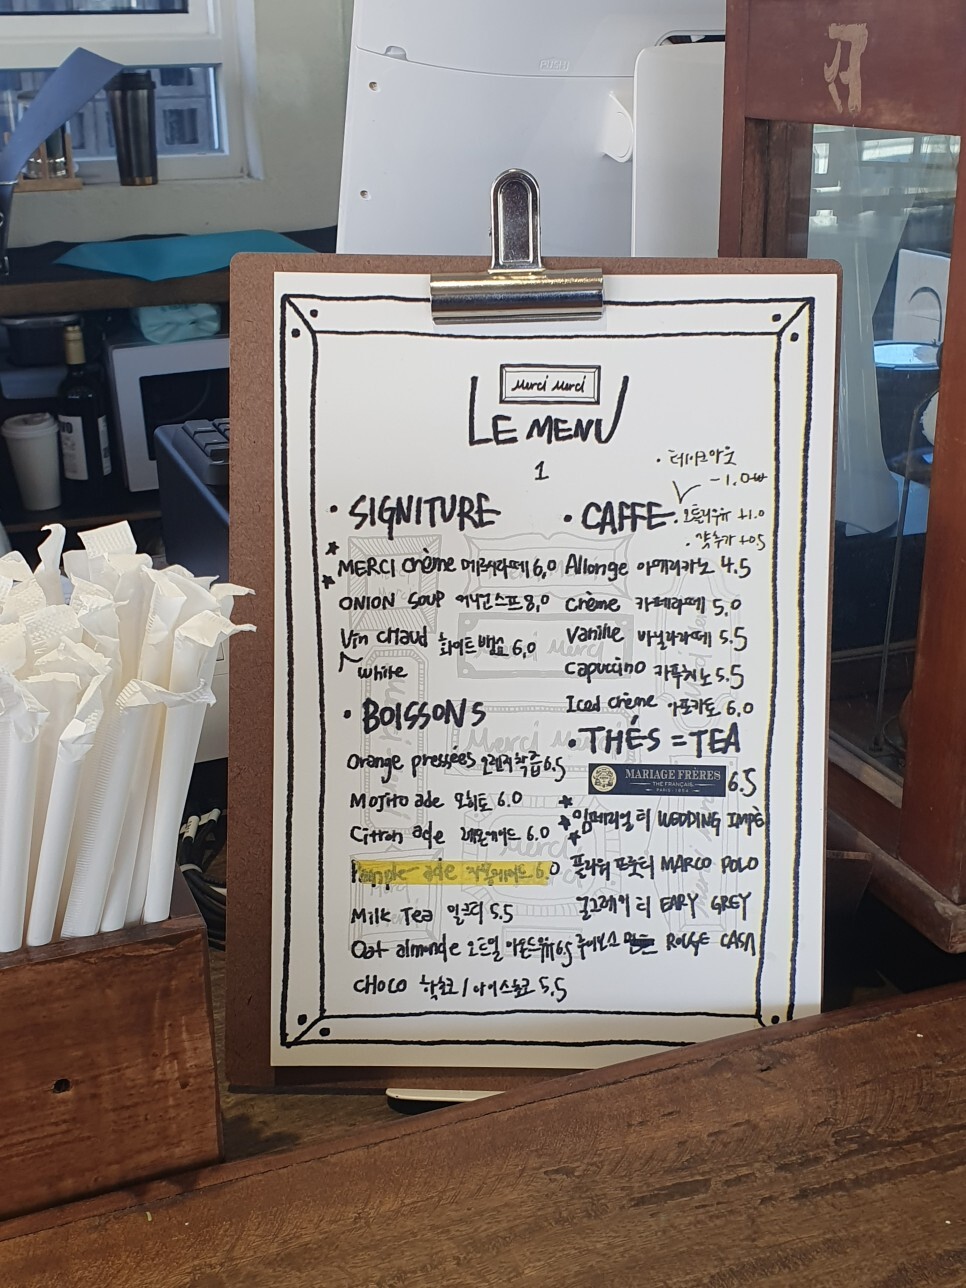 PUSH
Merci Merci
LE MENU
1
· 테이크아웃
-1.0₩
· SIGNITURE
MERCI crème 메르시라떼 6,0
ONION SOUP 어니언스프 8,0
Vin CHaud 화이트뱅쇼 6,0
white
· BOISSONS
Orange pressées 오렌지착즙 6.5
Mojito ade 모히토 6.0
Citron ade 레몬에이드 6.0
ade 자몽에이드 6.0
Milk Tea 밀크티 5.5
Oat almonde 오트밀 아몬드우유 6.5
CHOCO 핫초코/아이스초코 5.5
· CAFFE
오트밀우유 +1.0
· 샷추가 +0.5
Allonge 아메리카노 4.5
crème 카페라떼 5.0
Vanille 바닐라라떼 5.5
capuccino 카푸치노 5.5
Iced crème 아포카토 6.0
· THÉS = TEA
MARIAGE FRÈRES 6.5
THÉ FRANÇAIS
PARIS 1854
임페리얼 티 WEDDING IMPÈ
플라워 프룻티 MARCO POLO
얼그레이 티 EARY GREY
루이보스 ROUGE CASA
Merci Merci
Merci Merci